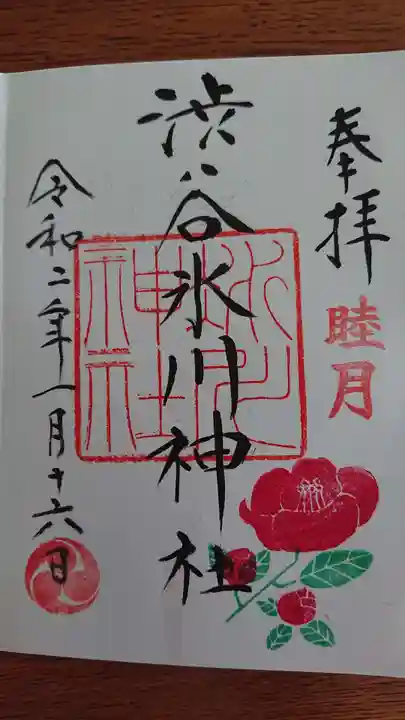 奉拝
睦月
渋谷氷川神社
氷川神社
令和二年一月十六日